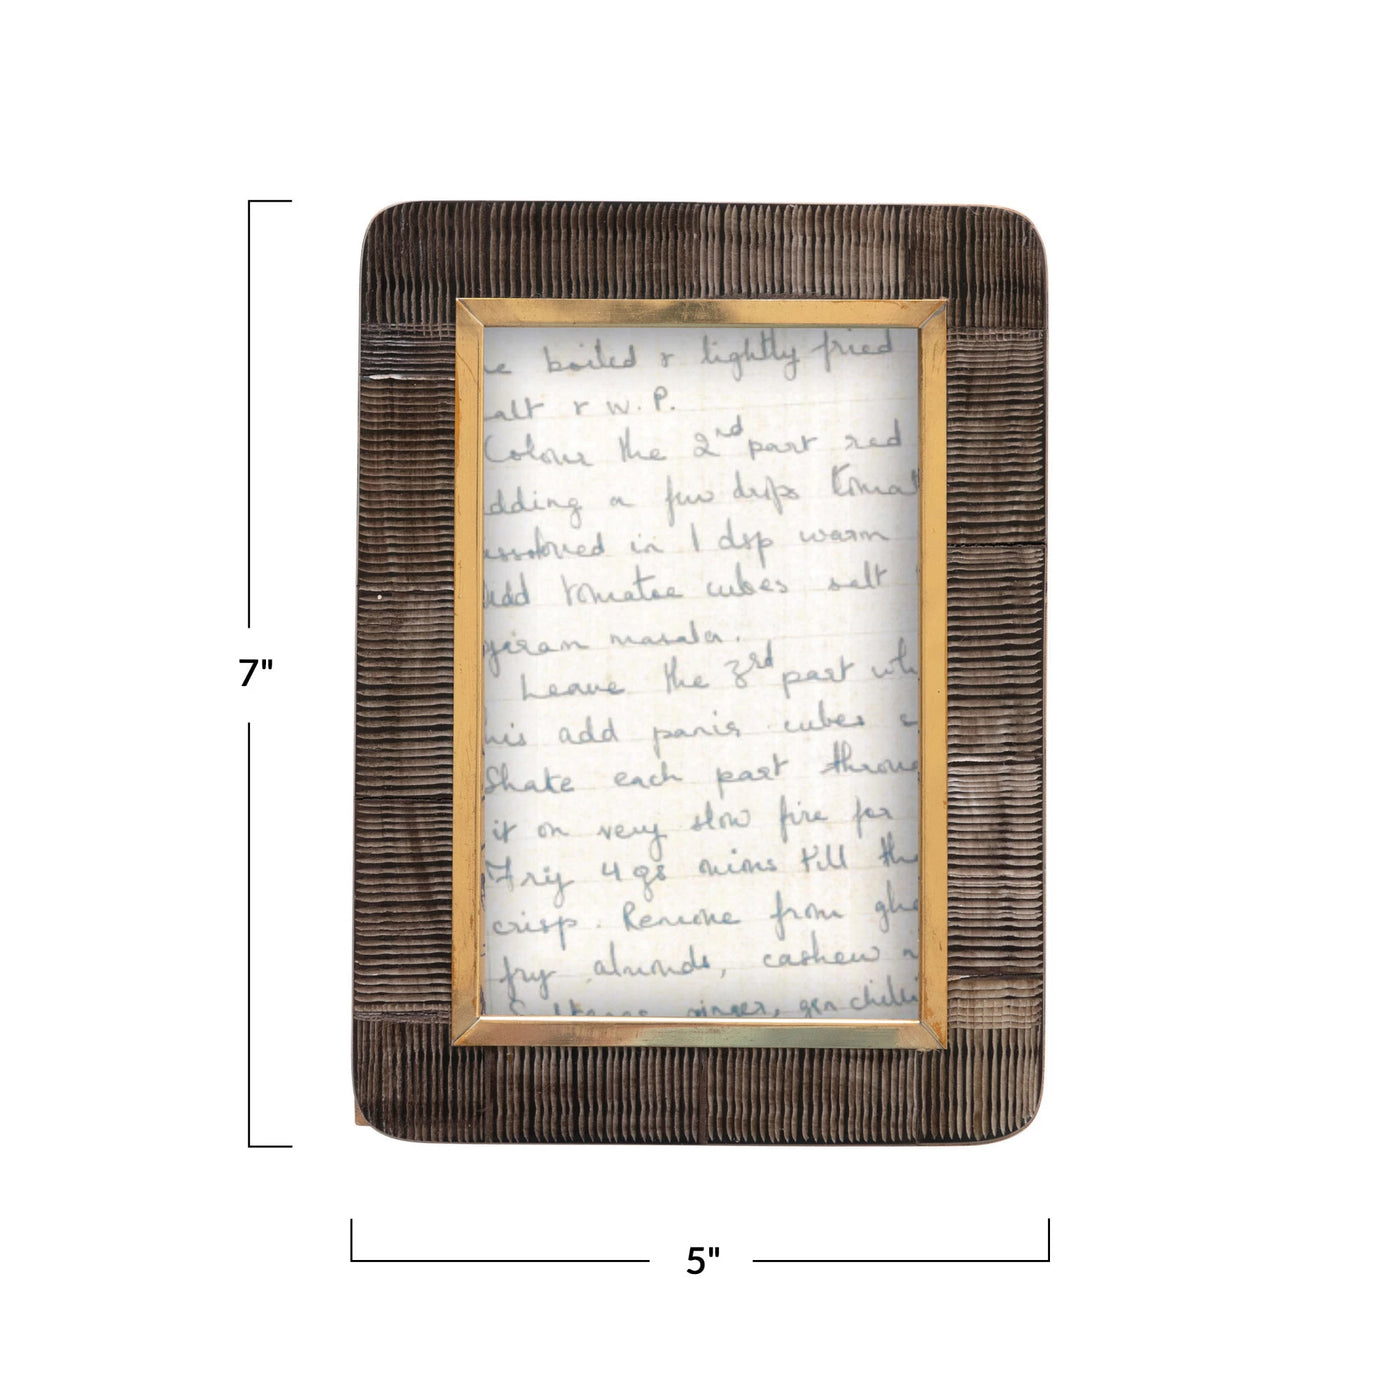 boiled & lightly fried
alt & W.P.
Colour the 2nd part red
dding a few drops tomat
ssolved in 1 dsp warm
Add tomatoe cubes salt
garam masala.
Leave the 3rd part wh
his add panir cubes
Shake each part throu
it on very slow fire for
Fry 4 gs onions till the
crisp. Remove from ghe
fry almonds, cashew n
Sultanas ginger, grn chilli
7"
5"